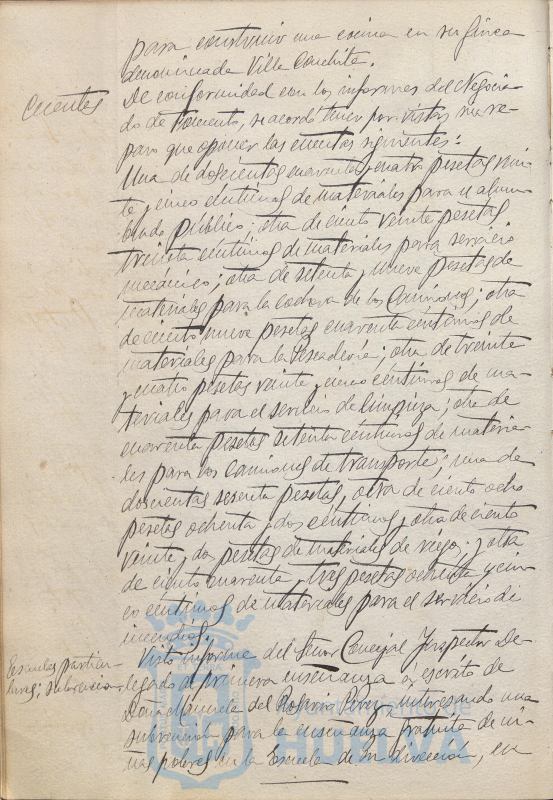 para construir una cocina en su finca
denominada Villa Conchita.
Cuentas
De conformidad con los informes del Negocia-
do de Fomento, se acordó tener por vistas sin re-
paro que oponer las cuentas siguientes:
Una de doscientas cuarenta y cuatro pesetas vein-
te y cinco céntimos de materiales para el alum-
brado público; otra de ciento veinte pesetas
treinta céntimos de materiales para servicio
mecánico; otra de setenta y nueve pesetas de
materiales para la cochera de los Camiones; otra
de ciento nueve pesetas cuarenta céntimos de
materiales para la Pescadería; otra de treinta
y cuatro pesetas veinte y cinco céntimos de ma-
teriales para el servicio de limpieza; otra de
cuarenta pesetas setenta céntimos de materia-
les para los camiones de transporte; una de
doscientas sesenta pesetas, otra de ciento ocho
pesetas ochenta y dos céntimos y otra de ciento
veinte y dos pesetas de materiales de riego; y otra
de ciento cuarenta y tres pesetas ochenta y cin-
co céntimos de materiales para el servicio de
incendios.
Escuelas particu-
lares; subvención.
Visto informe del Señor Concejal Inspector De-
legado de primera enseñanza a escrito de
Doña Manuela del Rosario Pérez, interesando una
subvención para la enseñanza gratuita de ni-
ñas pobres en la Escuela de su dirección, en
HUELVA